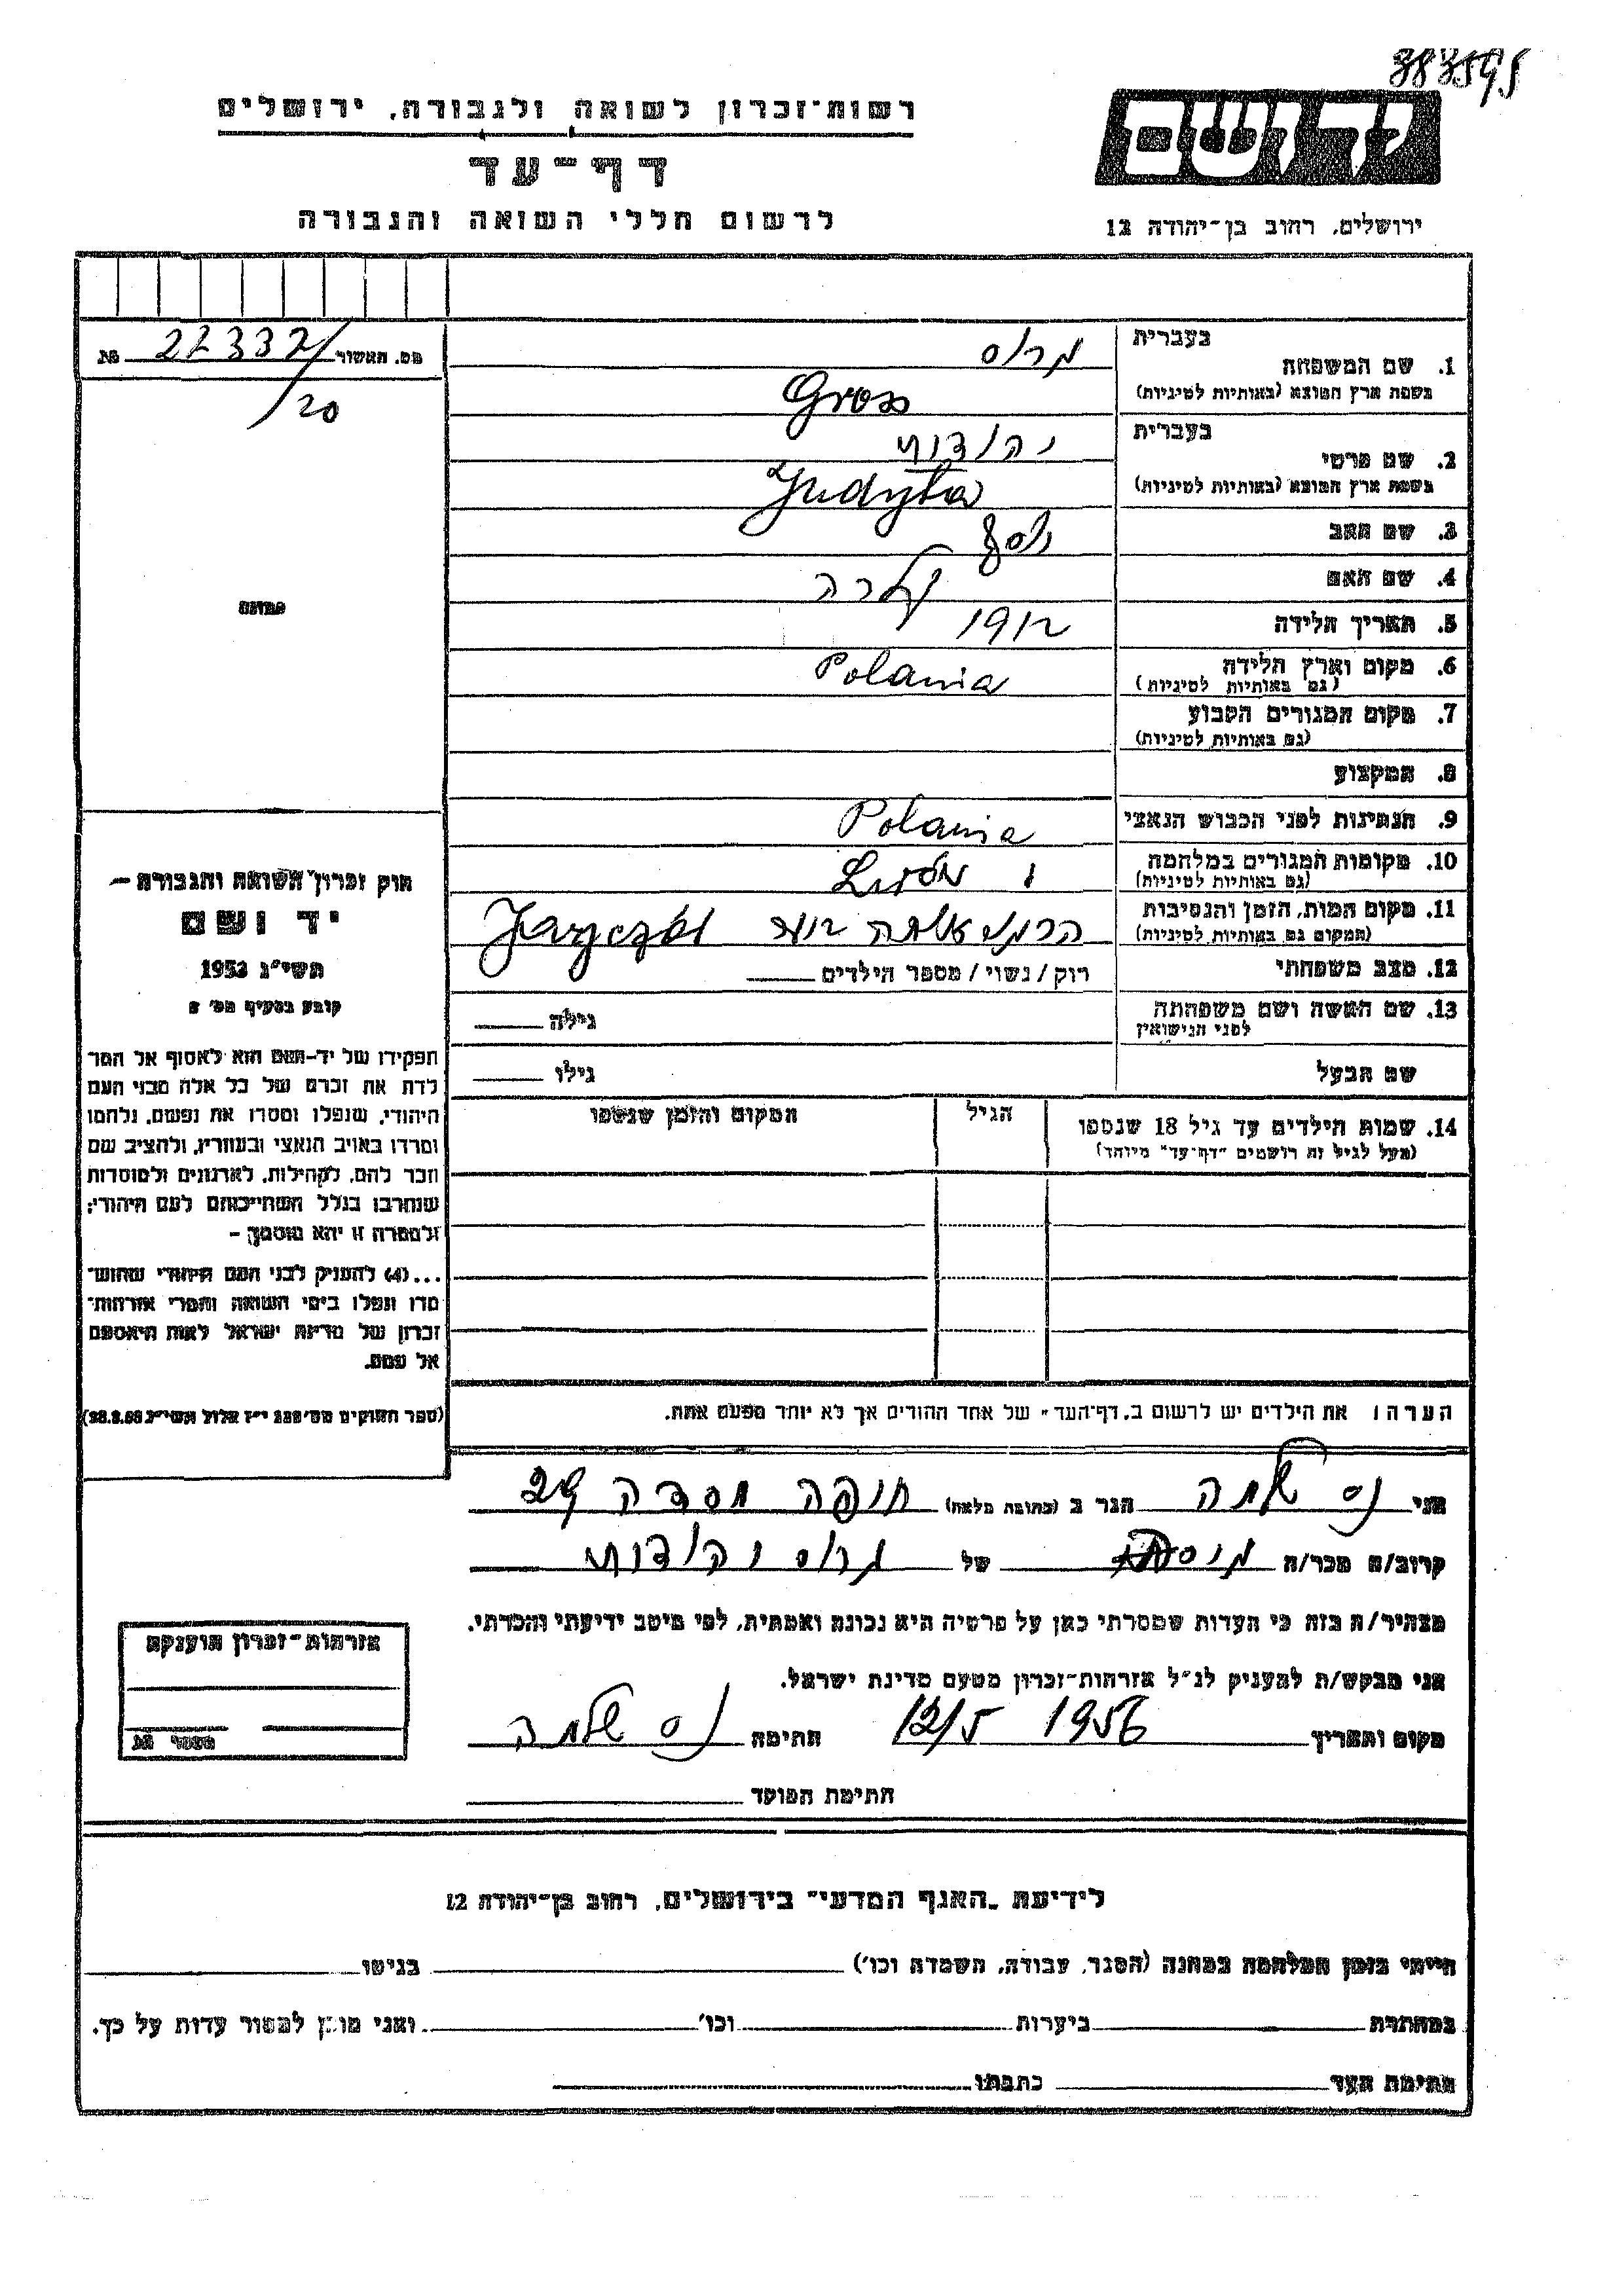 383595
רשות־זכרון לשואה ולגבורה, ירושלים
דף־עד
לרשום חללי השואה והגבורה
יד ושם
ירושלים, רחוב בן־יהודה 12
מס. תאשור 22332/ מת
/20
תמונה
חוק זכרון השואה והגבורה —
יד ושם
תשי״ג 1953
קובע בסעיף מס׳ 2
תפקידו של יד־ושם הוא לאסוף אל המו־
לדת את זכרם של כל אלה מבני העם
היהודי, שנפלו ומסרו את נפשם, נלחמו
ומרדו באויב הנאצי ובעוזריו, ולהציב שם
וזכר להם, לקהילות, לארגונים ולמוסדות
שנחרבו בגלל השתייכותם לעם היהודי;
ולמטרה זו יהא מוסמך —
...(4) להעניק לבני העם היהודי שהוש־
מדו ונפלו בימי השואה והמרי אזרחות־
זכרון של מדינת ישראל לאות היאספם
אל עמם.
(ספר החוקים מס׳ 132 י״ז אלול תשי״ג 28.8.53)
בעברית
1. שם המשפחה גרוס
בשפת ארץ המוצא (באותיות לטיניות) Gross
בעברית
2. שם פרטי יהודית
בשפת ארץ המוצא (באותיות לטיניות) Judyta
3. שם האב יוסף
4. שם האם קלרה
5. תאריך הלידה 1912
6. מקום וארץ הלידה Polania
(גם באותיות לטיניות)
7. מקום המגורים הקבוע
(גם באותיות לטיניות)
8. המקצוע
9. הנתינות לפני הכבוש הנאצי Polania
10. מקומות המגורים במלחמה
(גם באותיות לטיניות)
11. מקום המות, הזמן והנסיבות
(המקום גם באותיות לטיניות)
12. מצב משפחתי רוק / נשוי / מספר הילדים
13. שם האשה ושם משפחתה גילה
לפני הנישואין
שם הבעל גילו
14. שמות הילדים עד גיל 18 שנספו הגיל המקום והזמן שנספו
(מעל לגיל זה רושמים "דף־עד" מיוחד)
הערה: את הילדים יש לרשום ב„דף־העד״ של אחד ההורים אך לא יותר מפעם אחת.
אני נס שלמה הגר ב (כתובת מלאה) חיפה מסדה 29
קרוב/ה מכר/ה של גרוס יהודית
מצהיר/ה בזה כי העדות שמסרתי כאן על פרטיה היא נכונה ואמתית, לפי מיטב ידיעתי והכרתי.
אני מבקש/ת להעניק לנ״ל אזרחות־זכרון מטעם מדינת ישראל.
מקום ותאריך 12/5 1956 חתימה נס שלמה
חתימת הפוקד
אזרחות־זכרון הוענקה
מספר מת
לידיעת „האגף המדעי״ בירושלים, רחוב בן־יהודה 12
הייתי בזמן המלחמה במחנה (הסגר, עבודה, השמדה וכו׳) בגיטו
במחתרת ביערות וכו׳ ואני מוכן למסור עדות על כך.
חתימת העד כתבתו